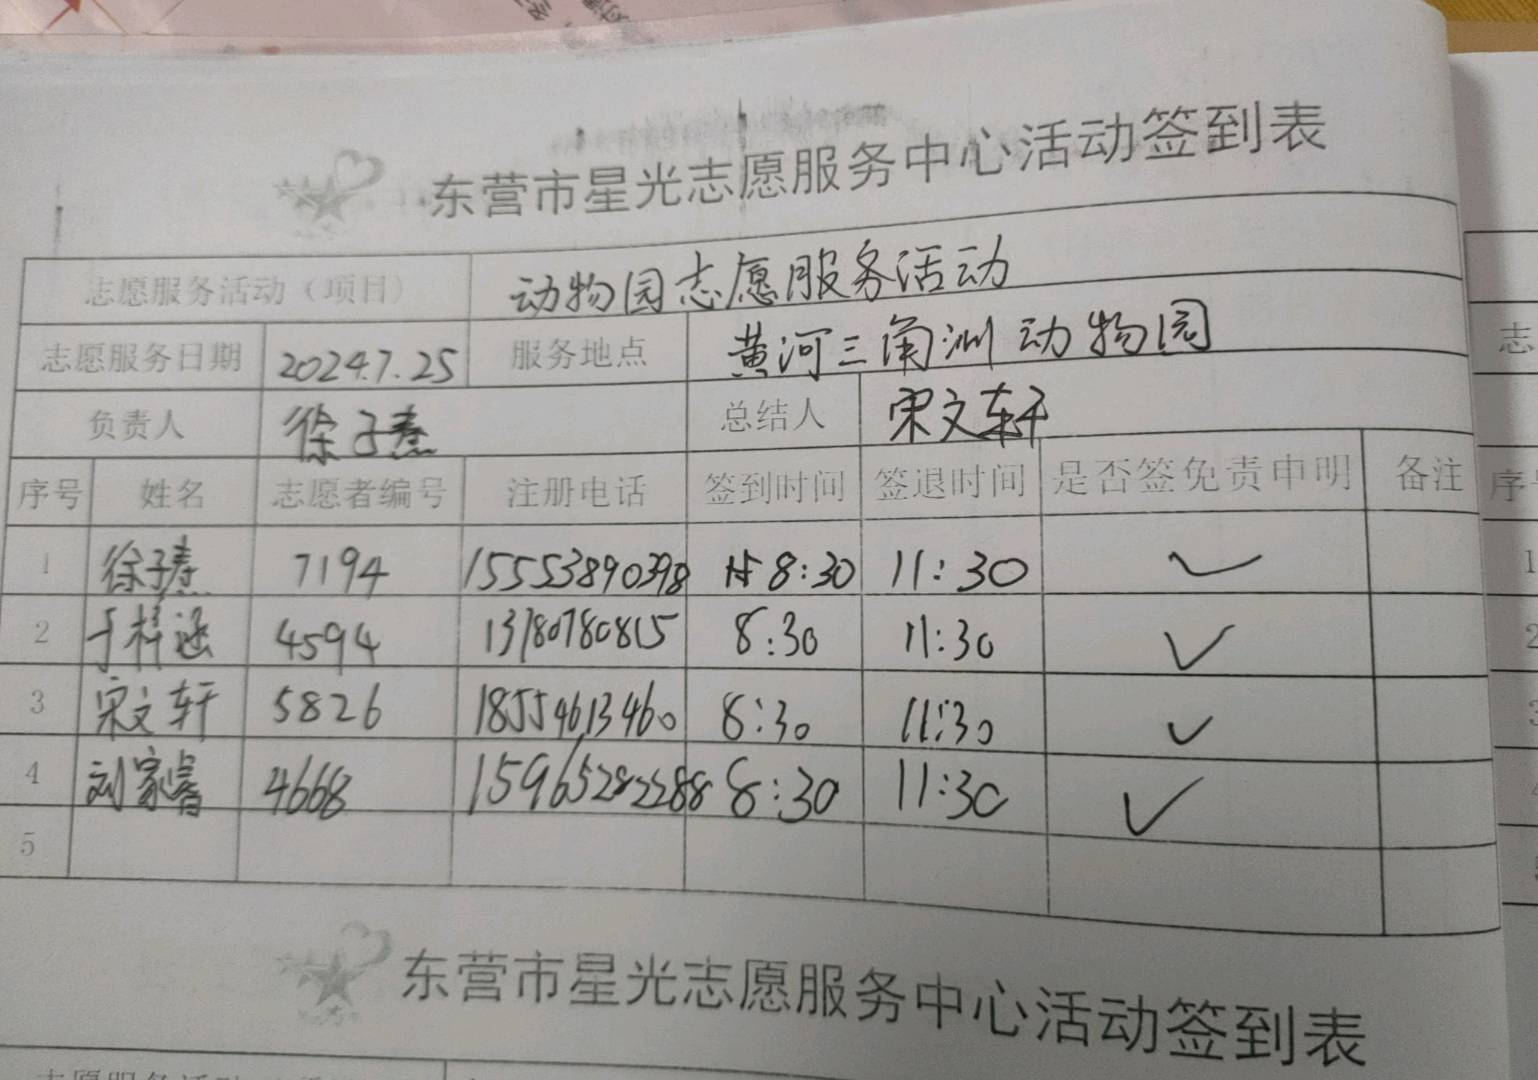 东营市星光志愿服务中心活动签到表
志愿服务活动（项目） 动物园志愿服务活动
志愿服务日期 2024.7.25 服务地点 黄河三角洲动物园
负责人 徐子 总结人 宋文轩
序号 姓名 志愿者编号 注册电话 签到时间 签退时间 是否签免责申明 备注
1 徐子 7194 15553890398 8:30 11:30 ✓
2 于梓涵 4594 13780780815 8:30 11:30 ✓
3 宋文轩 5826 18554613460 8:30 11:30 ✓
4 刘家睿 4668 15965282288 8:30 11:30 ✓
5
东营市星光志愿服务中心活动签到表